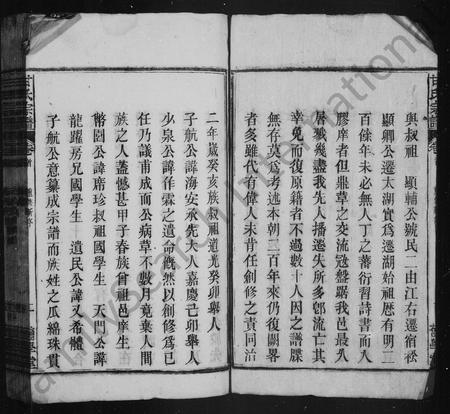 與叔祖 顯輔公號民二由江右遷宿松
顯卿公遷太湖實爲遷湖始祖歷有明二
百餘年未必無人丁之蕃衍習詩書而入
膠庠者但鼎革之交流寇盤踞我邑最久
屠戮幾盡我先人播遷失所多鄉流亡其
幸免而復原籍者不過數十人因之譜牒
無存莫爲考述本朝二百年來仍復闕畧
者多雖代有偉人未肯任創修之責同治
二年歲癸亥族叔祖道光癸卯舉人
子航公諱海安承先大人嘉慶己卯舉人
少泉公諱作霖之遺命慨然以創修爲己
任乃議甫成而公病草不數月竟棄人間
族之人蓋憾甚甲子春族曾祖邑庠生
幣圓公諱席珍叔祖國學生 天門公諱
龍躍房兄國學生 道民公諱又希體
子航公意纂成宗譜而族姓之瓜綿珠貫
FamilySearch International